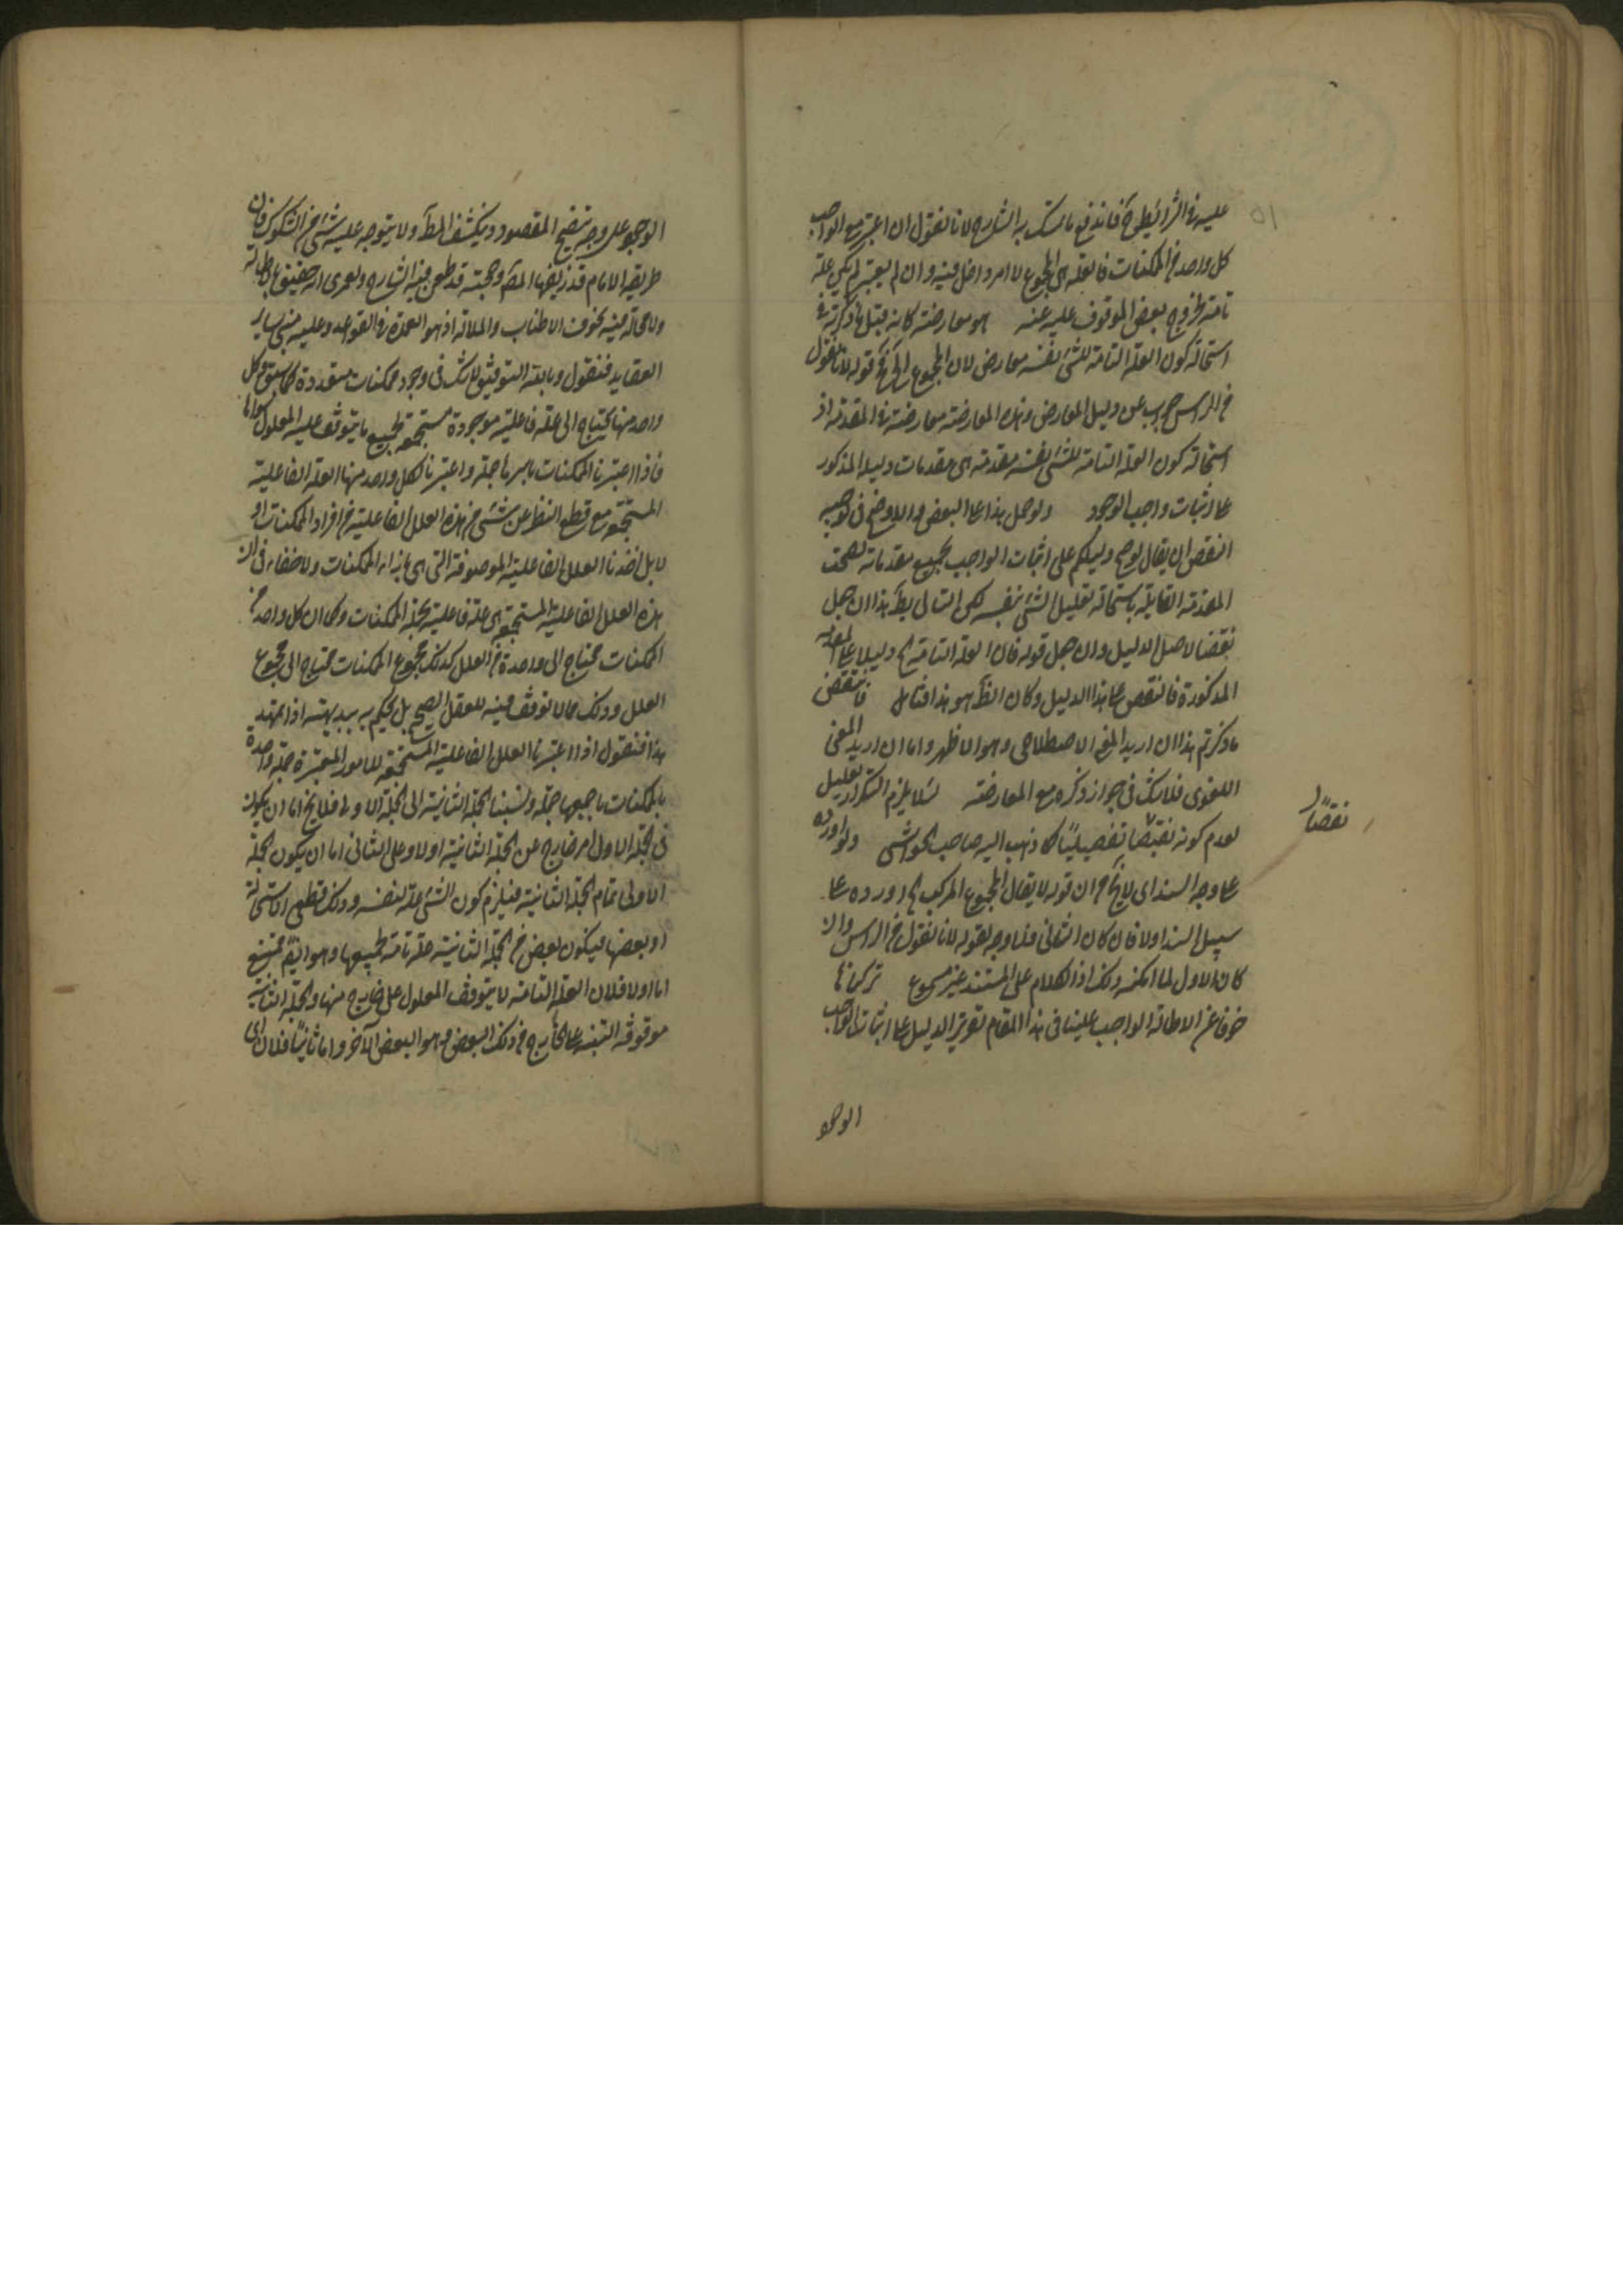 عليه في الشرائط وح فاندفع ما تمسك به الشارح لانا نقول ان اعتبر مع الواجب
كل واحد من الممكنات فالعلة هي المجموع لا امر داخل فيه وان لم يعتبر لم يكن علة
تامة لخروج بعض الموقوف عليه عنه هو معارضة كانه قيل ما ذكرته في
استحالة كون العلة التامة للشئ نفسه معارض لان المجموع الخ قوله لانا نقول
من الراس جواب عن دليل المعارض وهذه المعارضة معارضة في المقدمة اذ
استحالة كون العلة التامة للشئ نفسه مقدمة من مقدمات دليله المذكور
على اثبات واجب الوجود ولو حمل هذا على النقض والاوضح في توجيه
النقض ان يقال لو صح دليلكم على اثبات الواجب بجميع مقدماته لصحت
المقدمة القائلة باستحالة تعليل الشئ بنفسه لكن التالى بط هذا ان جعل
نقضا لاصل الدليل وان جعل قوله فان العلة التامة الخ دليلا على المقدمة
المذكورة فالنقض على هذا الدليل وكان الظ هو هذا فتامل فانتقض
ما ذكرتم هذا ان اريد المعنى الاصطلاحى وهو الاظهر واما ان اريد المعنى
اللغوى فلا شك في جواز ذكره مع المعارضة لئلا يلزم التكرار تعليل
لعدم كونه نقضا تفصيليا كما ذهب اليه صاحب الحواشى ولو اورده
على وجه السند اى لا يخ ان قوله لا يقال المجموع المركب الخ اورده على
سبيل السند اولا فان كان الثانى فلا وجه لقوله لانا نقول من الراس وان
كان الاول لما امكنه ذلك اذ الكلام على المستند غير مسموع تركناها
خوفا عن الاطالة الواجب علينا في هذا المقام تقرير الدليل على اثبات الواجب
الوجو
نقضا
الوجو على وجه يتضح المقصود وينكشف المط ولا يتوجه عليه شئ من الشكوك فان
طريقة الامام قد زيفها المص وحجته قد طعن فيه الشارح ولعمرى انه حقيق بالاطالة
ولا محالة فيه بخوف الاطناب والملالة اذ هو العمدة في القواعد وعليه مبنى ساير
العقايد فنقول وبالله التوفيق لا شك في وجود ممكنات متعددة كما سبق وكل
واحد منها يحتاج الى علة فاعلية موجودة مستجمعة لجميع ما يتوقف عليه المعلول سواها
فاذا اعتبرنا الممكنات باسرها جملة واعتبرنا لكل واحد منها العلة الفاعلية
المستجمعة مع قطع النظر عن شئ من هذه العلل الفاعلية من افراد الممكنات او
لا بل اخذنا العلل الفاعلية الموصوفة التى هى بازاء الممكنات ولا خفاء في ان
هذه العلل الفاعلية المستجمعة هى علة فاعلية بجملة الممكنات وكما ان كل واحد من
الممكنات محتاج الى واحدة من العلل كذلك مجموع الممكنات محتاج الى مجموع
العلل وذلك مما لا توقف فيه للعقل الصحيح بل يحكم به ببديهته اذا تمهد
هذا فنقول اذا اعتبرنا العلل الفاعلية المستجمعة للامور المعتبرة جملة واحدة
بالممكنات باجمعها جملة ونسبنا الجملة الثانية الى الجملة الاولى فلا يخ اما ان يكون
في الجملة الاولى امر خارج عن الجملة الثانية اولا وعلى الثانى اما ان يكون الجملة
الاولى تمام الجملة الثانية فيلزم كون الشئ علة لنفسه وذلك قطعى الاستحالة
او بعضها فيكون بعض من الجملة الثانية علة تامة لجميعها وهو ايضا ممتنع
اما اولا فلان العلة التامة لا يتوقف المعلول على خارج منها والجملة الثانية
موقوفة البتة على الخارج من ذلك البعض وهو البعض الآخر واما ثانيا فلان اى